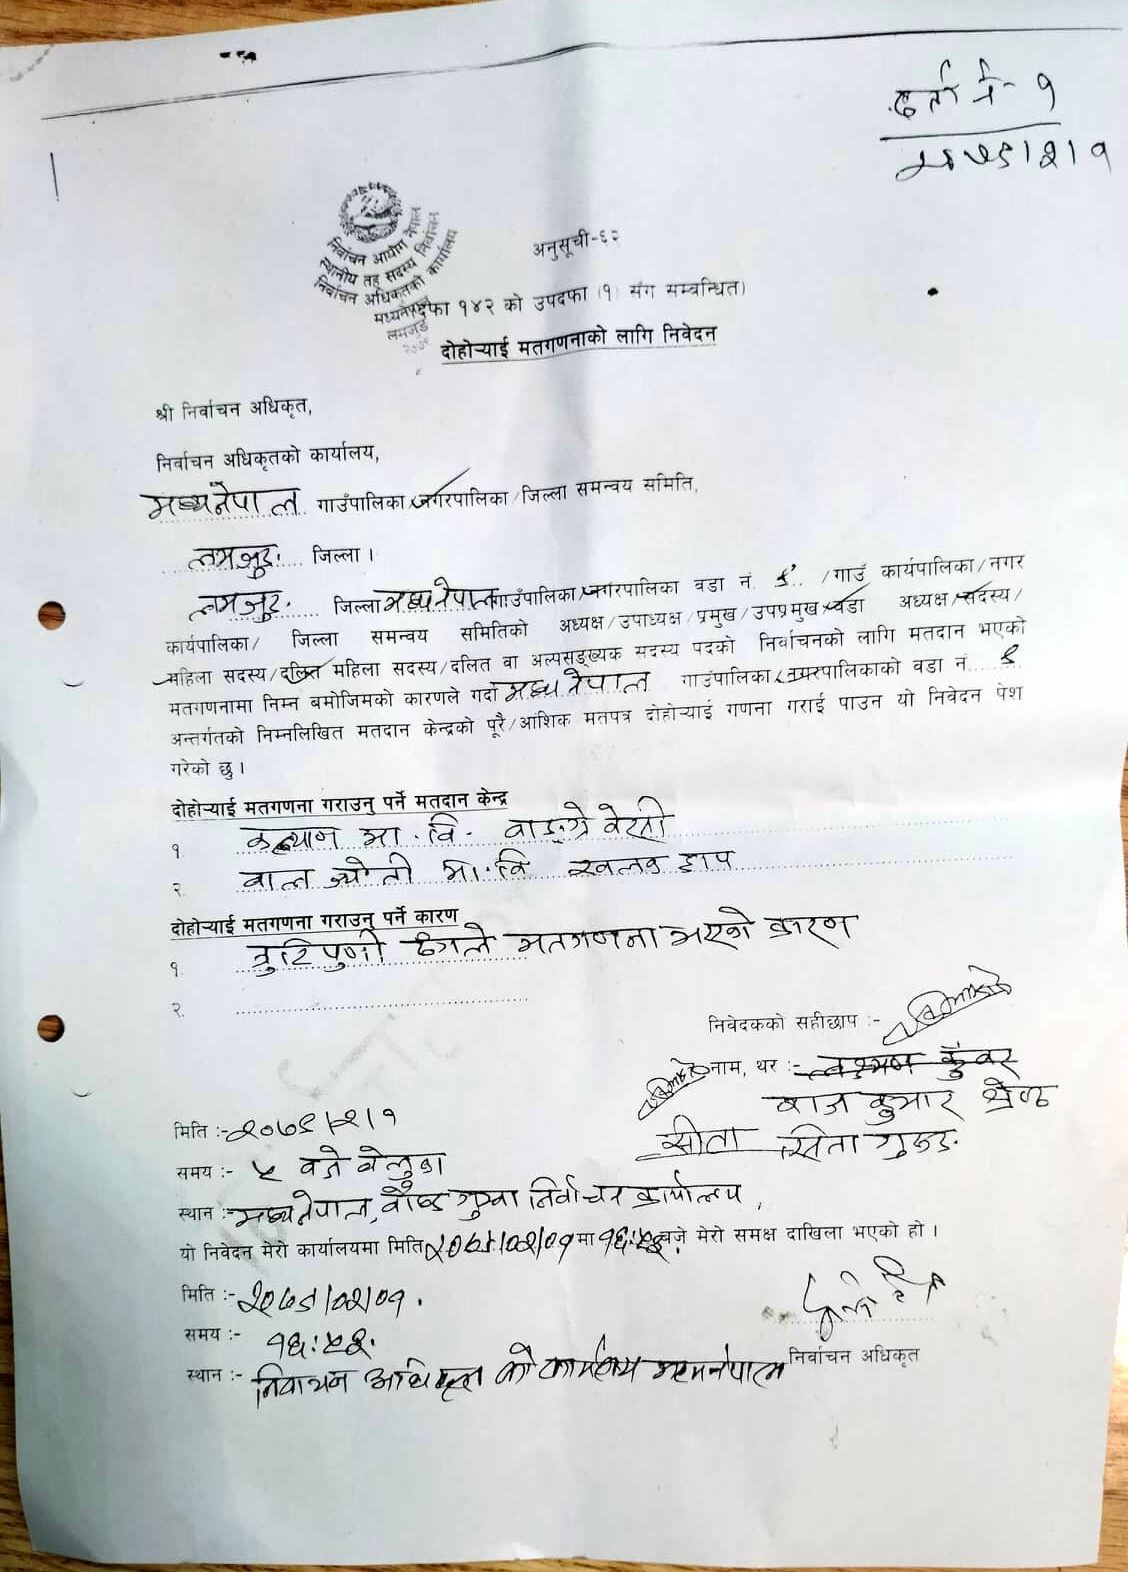 दर्ता नं- १
२०७९।२।१
निर्वाचन आयोग नेपाल
स्थानीय तह सदस्य निर्वाचन
निर्वाचन अधिकृतको कार्यालय
मध्यनेपाल
लमजुङ
अनुसूची-६२
दफा १४२ को उपदफा (१) संग सम्बन्धित)
दोहोऱ्याई मतगणनाको लागि निवेदन
श्री निर्वाचन अधिकृत,
निर्वाचन अधिकृतको कार्यालय,
मध्यनेपाल गाउँपालिका/नगरपालिका/जिल्ला समन्वय समिति,
लमजुङ जिल्ला ।
लमजुङ जिल्ला मध्यनेपाल गाउँपालिका/नगरपालिका वडा नं. /गाउँ कार्यपालिका/नगर
कार्यपालिका/ जिल्ला समन्वय समितिको अध्यक्ष/उपाध्यक्ष/प्रमुख/उपप्रमुख/वडा अध्यक्ष/सदस्य/
महिला सदस्य/दलित महिला सदस्य/दलित वा अल्पसङ्ख्यक सदस्य पदको निर्वाचनको लागि मतदान भएको
मतगणनामा निम्न बमोजिमको कारणले गर्दा मध्यनेपाल गाउँपालिका/नगरपालिकाको वडा नं.
अन्तर्गतको निम्नलिखित मतदान केन्द्रको पूरै/आंशिक मतपत्र दोहोऱ्याई गणना गराई पाउन यो निवेदन पेश
गरेको छु ।
दोहोऱ्याई मतगणना गराउनु पर्ने मतदान केन्द्र
१. कल्याण मा.वि. वाङ्ग्रे वेसी
२. बाल ज्योती मा.वि
दोहोऱ्याई मतगणना गराउनु पर्ने कारण
१. त्रुटिपुर्ण ढंगले मतगणना भएको कारण
२.
निवेदकको सहीछाप :-
नाम, थर :- लक्ष्मण कुँवर
राज कुमार श्रेष्ठ
सीता सिता गुरुङ
मिति :- २०७९।२।१
समय :- ५ बजे वेलुका
स्थान :- मध्यनेपाल, निर्वाचन कार्यालय,
यो निवेदन मेरो कार्यालयमा मिति २०७९।०२।०१ मा १६:५२ बजे मेरो समक्ष दाखिला भएको हो ।
मिति :- २०७९।०२।०१.
समय :- १६:५२.
स्थान :- निर्वाचन अधिकृत को कार्यालय मध्यनेपाल
निर्वाचन अधिकृत